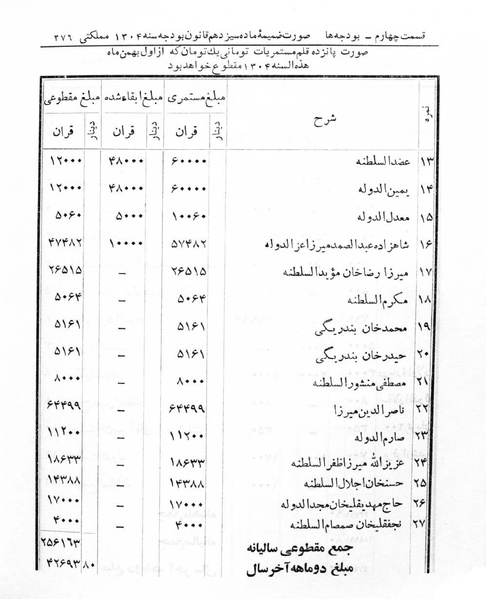 قسمت چهارم – بودجه‌ها صورت ضمیمهٔ ماده سیزدهم قانون بودجه سنه ۱۳۰۴ مملکتی ۳۷۶
صورت پانزده قلم مستمریات تومانی یک تومان که از اول بهمن ماه
هذه السنه ۱۳۰۴ مقطوع خواهد بود
نمره شرح مبلغ مستمری مبلغ ابقاء شده مبلغ مقطوعی
قران دینار قران دینار قران دینار
۱۳ عضد السلطنه ۶۰۰۰۰ ۴۸۰۰۰ ۱۲۰۰۰
۱۴ یمین الدوله ۶۰۰۰۰ ۴۸۰۰۰ ۱۲۰۰۰
۱۵ معدل الدوله ۱۰۰۶۰ ۵۰۰۰ ۵۰۶۰
۱۶ شاهزاده عبدالصمد میرزا عز الدوله ۵۷۴۸۲ ۱۰۰۰۰ ۴۷۴۸۲
۱۷ میرزا رضا خان مؤید السلطنه ۲۶۵۱۵ – ۲۶۵۱۵
۱۸ مکرم السلطنه ۵۰۶۴ – ۵۰۶۴
۱۹ محمد خان بندر یگی ۵۱۶۱ – ۵۱۶۱
۲۰ حیدر خان بندر یگی ۵۱۶۱ – ۵۱۶۱
۲۱ مصطفی منشور السلطنه ۸۰۰۰ – ۸۰۰۰
۲۲ ناصر الدین میرزا ۶۴۴۹۹ – ۶۴۴۹۹
۲۳ صارم الدوله ۱۱۲۰۰ – ۱۱۲۰۰
۲۴ عزیز الله میرزا ظفر السلطنه ۱۸۶۳۳ – ۱۸۶۳۳
۲۵ حسنخان اجلال السلطنه ۱۴۳۸۸ – ۱۴۳۸۸
۲۶ حاج مهدیقلیخان مجد الدوله ۱۷۰۰۰ – ۱۷۰۰۰
۲۷ نجفقلیخان صمصام السلطنه ۴۰۰۰ – ۴۰۰۰
جمع مقطوعی سالیانه ۲۵۶۱۶۳
مبلغ دوماهه آخر سال ۴۲۶۹۳ ۸۰